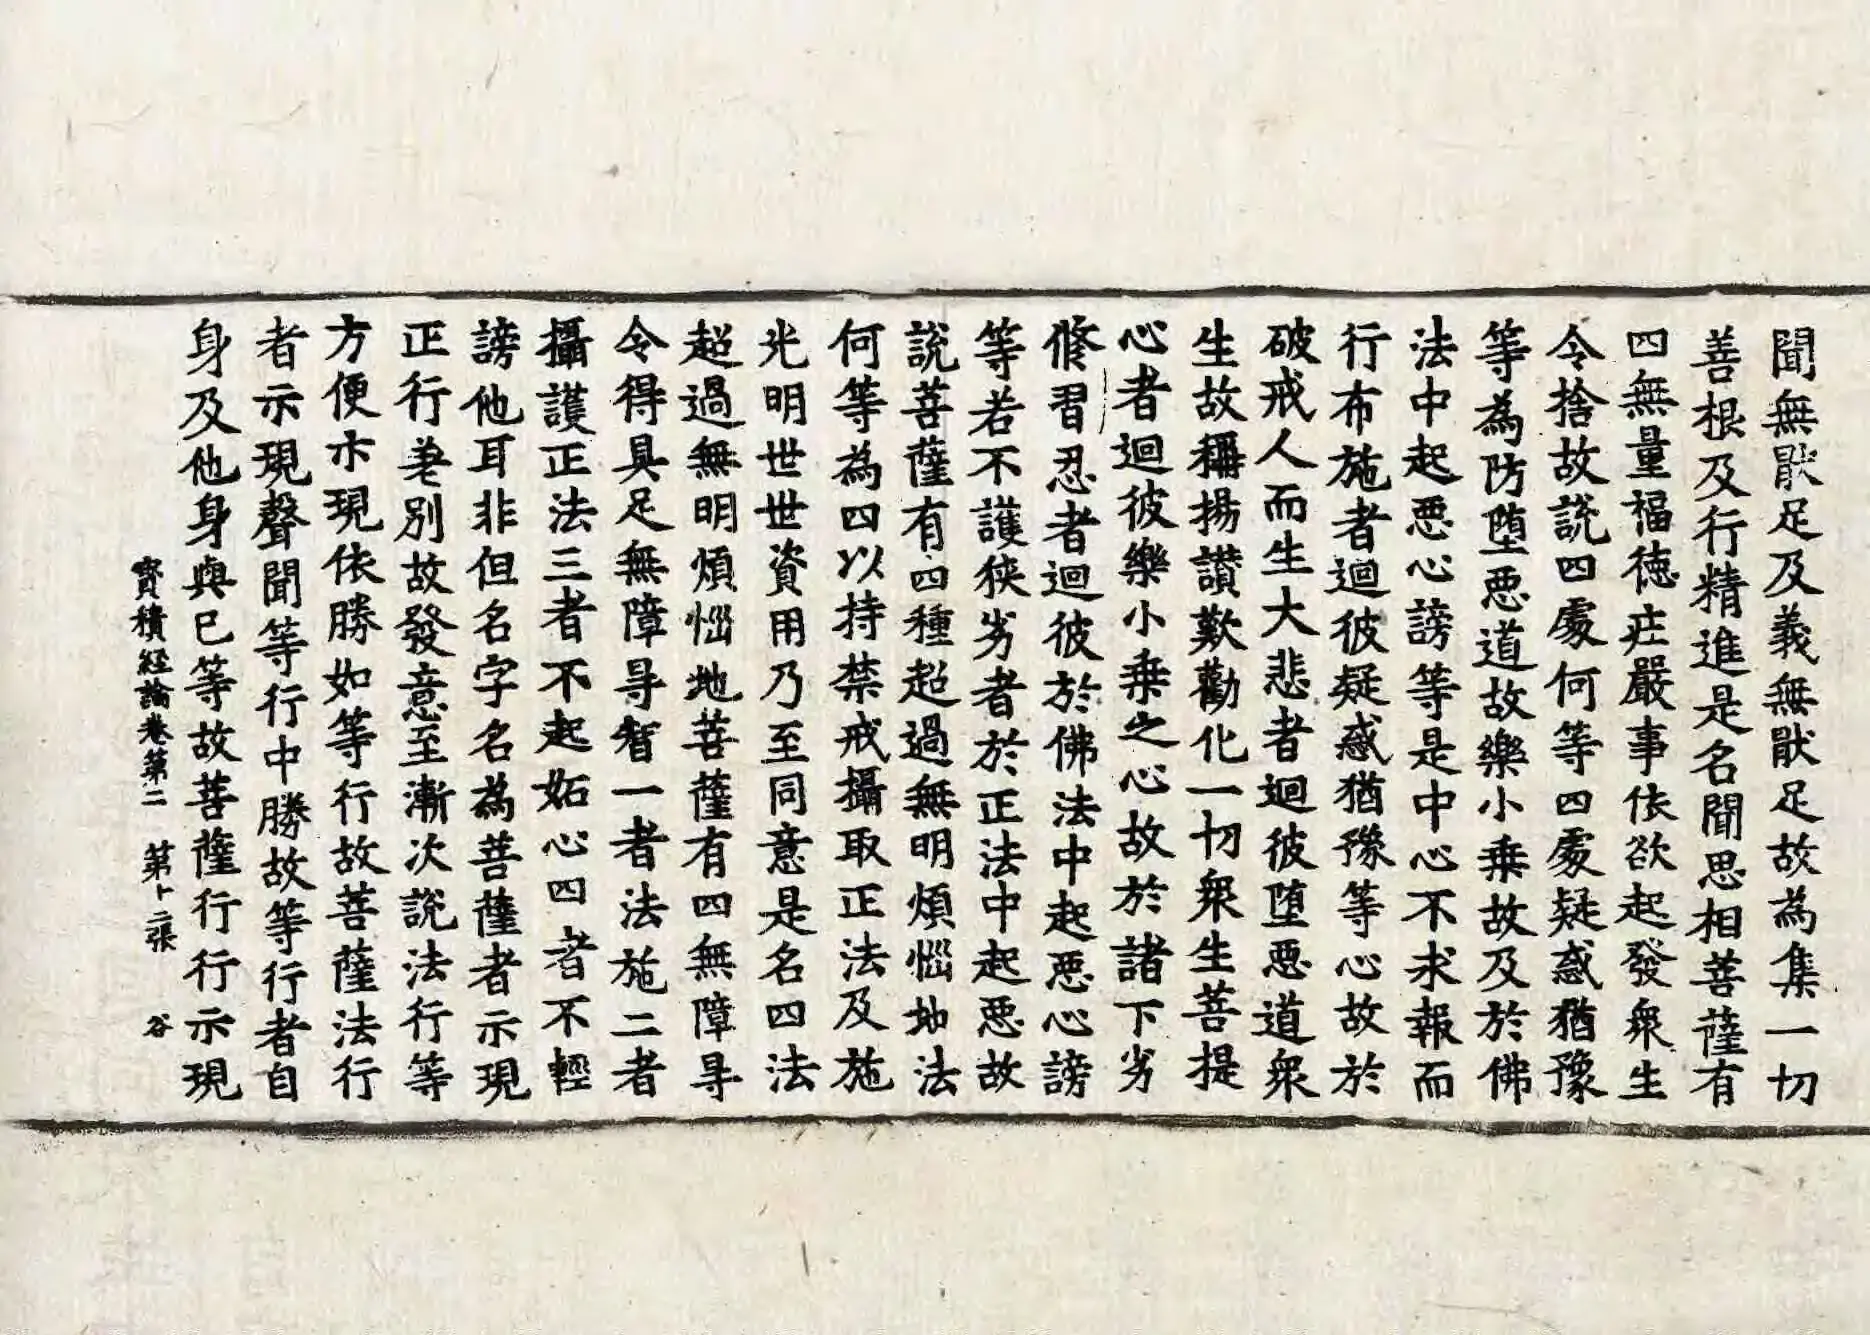 聞無猒足及義無猒足故為集一切
善根及行精進是名聞思相菩薩有
四無量福徳庄嚴事依欲起發衆生
令捨故說四處何等四處疑惑猶豫
等為防墮惡道故樂小乗故及於佛
法中起惡心謗等是中心不求報而
行布施者迴彼疑惑猶豫等心故於
破戒人而生大悲者迴彼墮惡道衆
生故稱揚讃歎勸化一切衆生菩提
心者迴彼樂小乗之心故於諸下劣
修習忍者迴彼於佛法中起惡心謗
等若不護狹劣者於正法中起惡故
說菩薩有四種超過無明煩惱地法
何等為四以持禁戒攝取正法及施
光明世世資用乃至同意是名四法
超過無明煩惱地菩薩有四無障㝵
令得具足無障㝵智一者法施二者
攝護正法三者不起妬心四者不輕
謗他耳非但名字名為菩薩者示現
正行差別故發意至漸次說法行等
方便示現依勝如等行故菩薩法行
者示現聲聞等行中勝故等行者自
身及他身與已等故菩薩行行示現
寳積経論卷第二　第十二張　谷